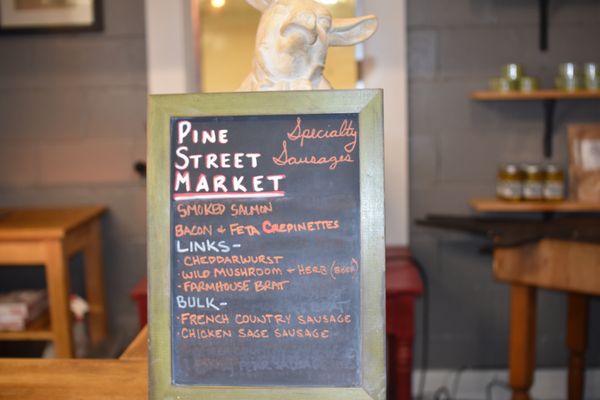 PINE
STREET
MARKET
Specialty
Sausages
SMOKED SALMON
BACON & FETA CREPINETTES
LINKS-
· CHEDDARWURST
· WILD MUSHROOM + HERB (BEEF)
· FARMHOUSE BRAT
BULK-
· FRENCH COUNTRY SAUSAGE
· CHICKEN SAGE SAUSAGE